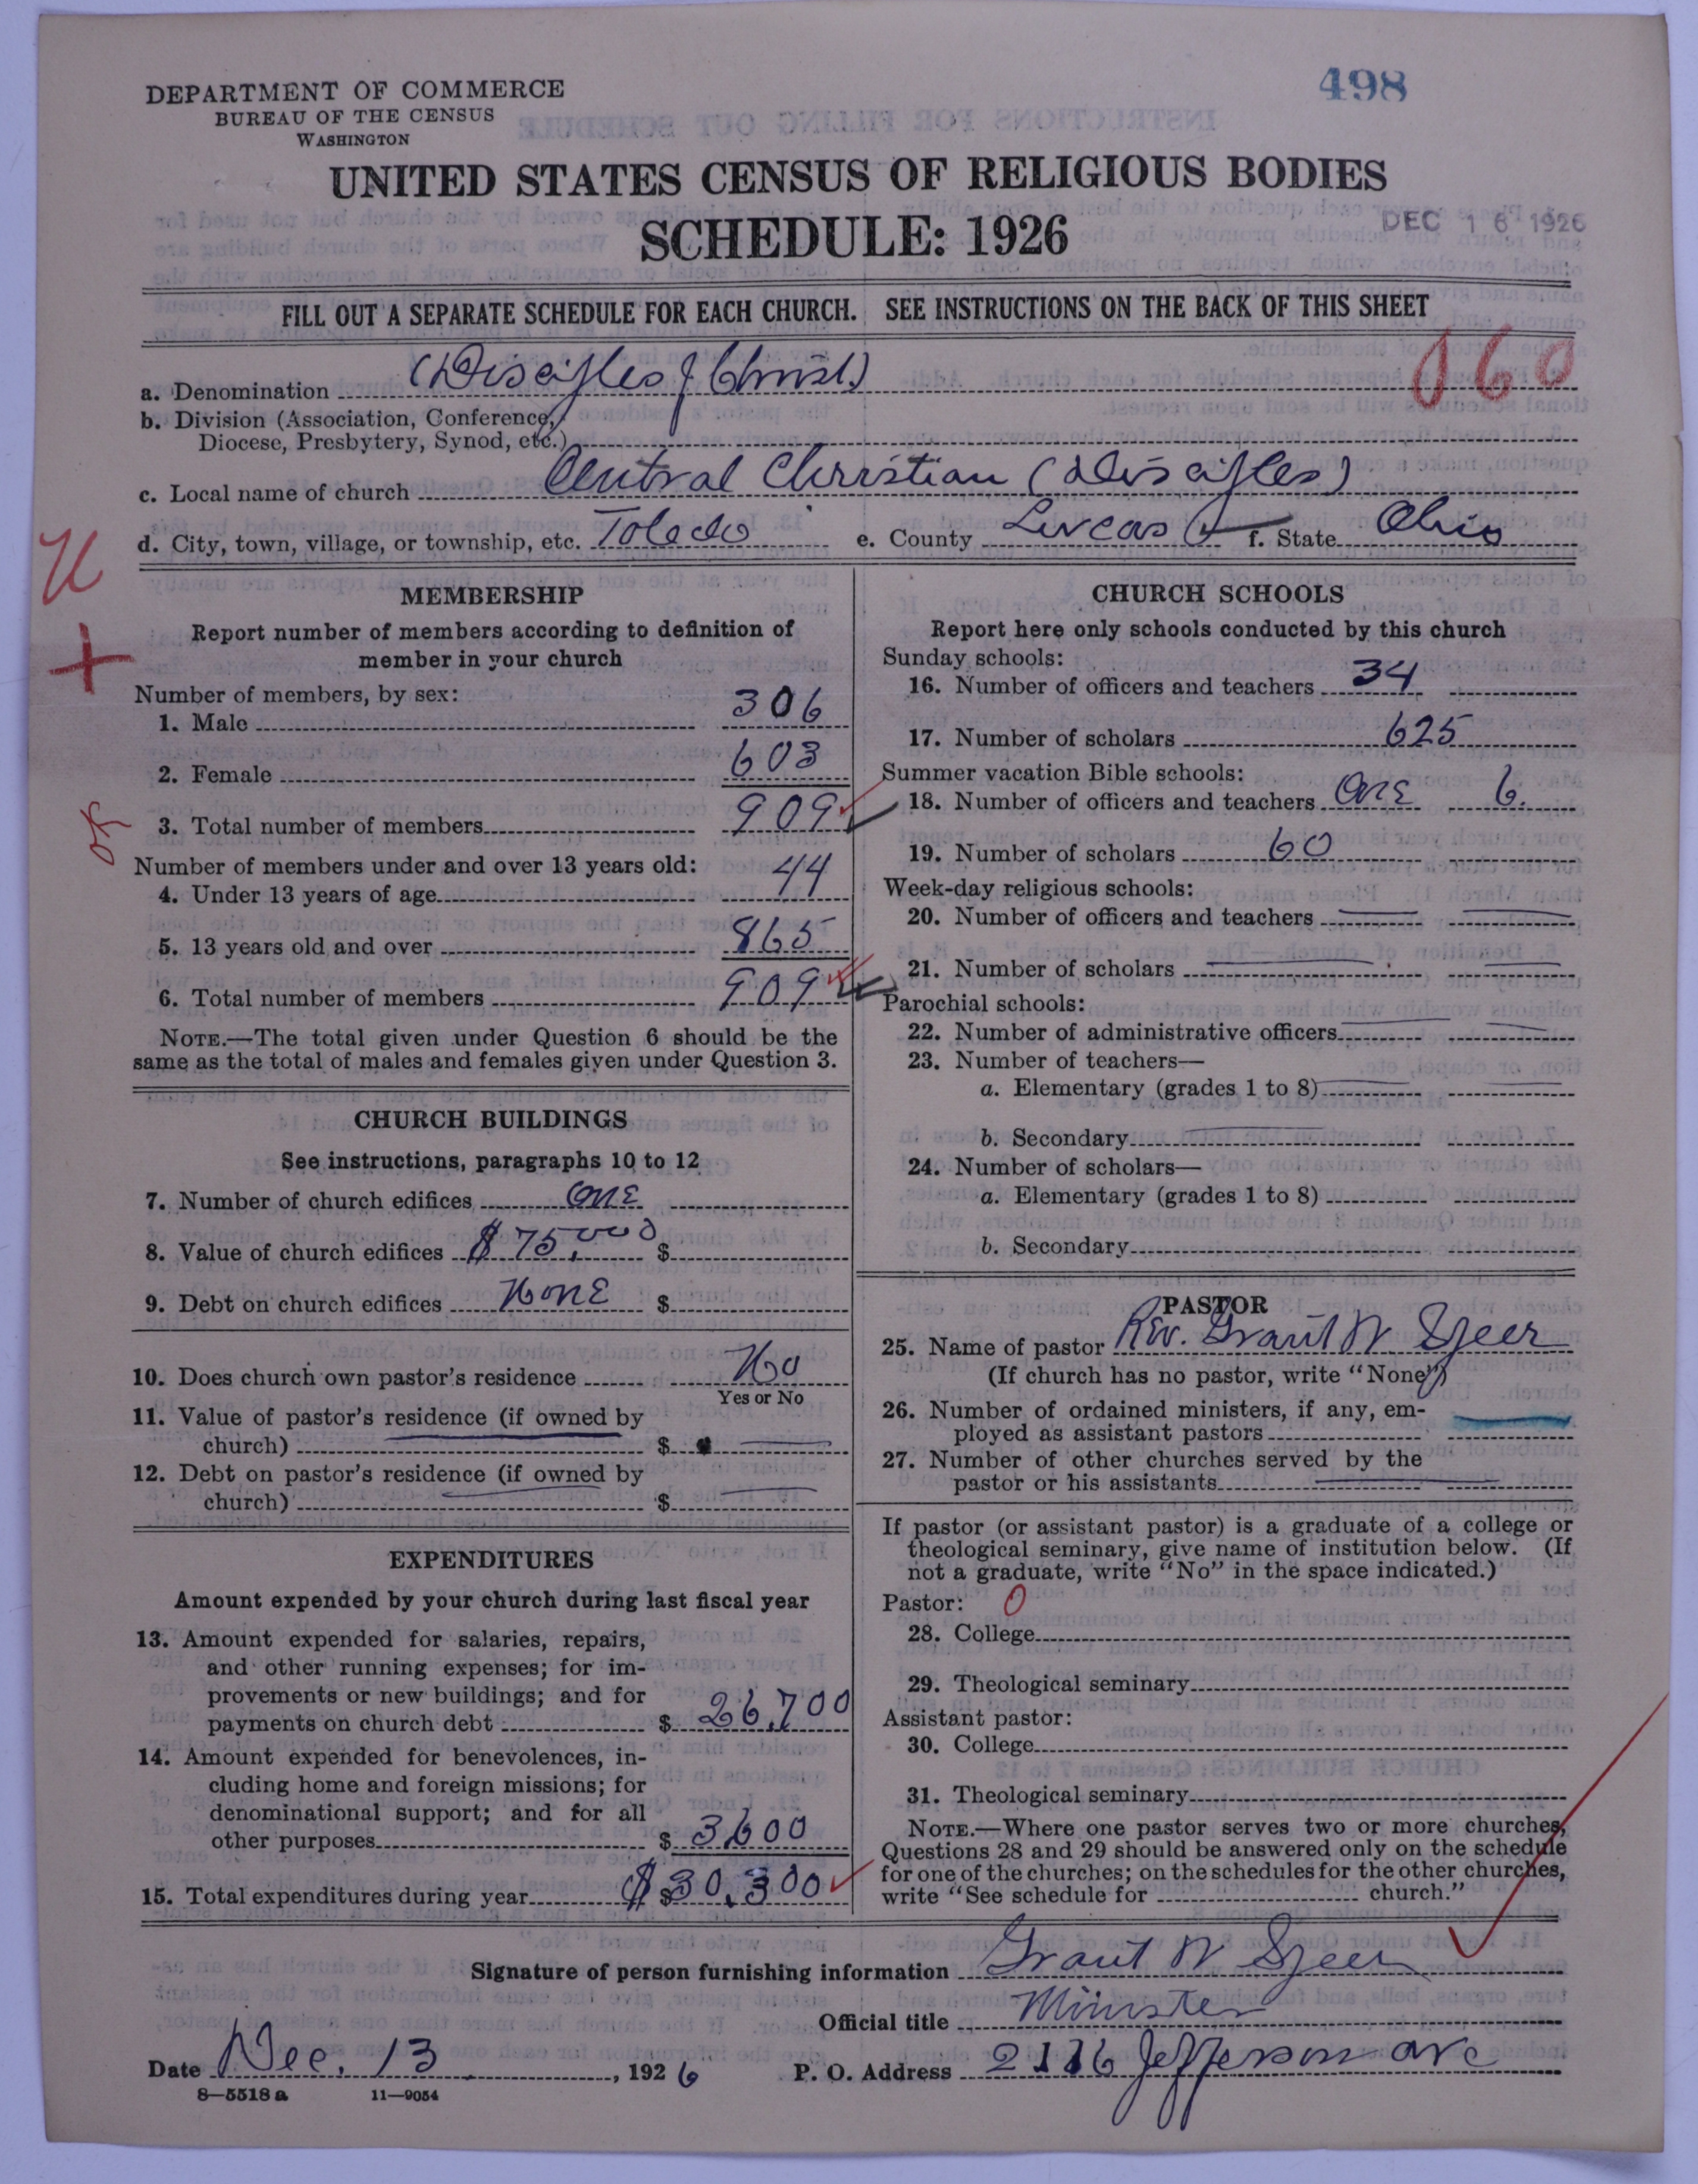 498
DEPARTMENT OF COMMERCE
BUREAU OF THE CENSUS
WASHINGTON
UNITED STATES CENSUS OF RELIGIOUS BODIES
SCHEDULE: 1926
DEC 16 1926
FILL OUT A SEPARATE SCHEDULE FOR EACH CHURCH. SEE INSTRUCTIONS ON THE BACK OF THIS SHEET
060
a. Denomination (Disciples of Christ)
b. Division (Association, Conference,
Diocese, Presbytery, Synod, etc.)
c. Local name of church Central Christian (Disciples)
d. City, town, village, or township, etc. Toledo e. County Lucas f. State Ohio
U
+
MEMBERSHIP
Report number of members according to definition of
member in your church
Number of members, by sex:
1. Male 306
2. Female 603
3. Total number of members 909
ok
Number of members under and over 13 years old:
4. Under 13 years of age 44
5. 13 years old and over 865
6. Total number of members 909
NOTE.—The total given under Question 6 should be the
same as the total of males and females given under Question 3.
CHURCH BUILDINGS
See instructions, paragraphs 10 to 12
7. Number of church edifices one
8. Value of church edifices $75,000 $
9. Debt on church edifices None $
10. Does church own pastor's residence No
Yes or No
11. Value of pastor's residence (if owned by
church) $
12. Debt on pastor's residence (if owned by
church) $
EXPENDITURES
Amount expended by your church during last fiscal year
13. Amount expended for salaries, repairs,
and other running expenses; for im-
provements or new buildings; and for
payments on church debt $ 26,700
14. Amount expended for benevolences, in-
cluding home and foreign missions; for
denominational support; and for all
other purposes $ 3,600
15. Total expenditures during year $ $30,300
CHURCH SCHOOLS
Report here only schools conducted by this church
Sunday schools:
16. Number of officers and teachers 34
17. Number of scholars 625
Summer vacation Bible schools:
18. Number of officers and teachers One 6.
19. Number of scholars 60
Week-day religious schools:
20. Number of officers and teachers
21. Number of scholars
Parochial schools:
22. Number of administrative officers
23. Number of teachers—
a. Elementary (grades 1 to 8)
b. Secondary
24. Number of scholars—
a. Elementary (grades 1 to 8)
b. Secondary
PASTOR
25. Name of pastor Rev. Grant W. Speer
(If church has no pastor, write "None")
26. Number of ordained ministers, if any, em-
ployed as assistant pastors
27. Number of other churches served by the
pastor or his assistants
If pastor (or assistant pastor) is a graduate of a college or
theological seminary, give name of institution below. (If
not a graduate, write "No" in the space indicated.)
Pastor: 0
28. College
29. Theological seminary
Assistant pastor:
30. College
31. Theological seminary
NOTE.—Where one pastor serves two or more churches,
Questions 28 and 29 should be answered only on the schedule
for one of the churches; on the schedules for the other churches,
write "See schedule for church."
Signature of person furnishing information Grant W Speer
Official title Minister
Date Dec. 13, 1926 P. O. Address 2116 Jefferson ave
8—5518 a 11—9054